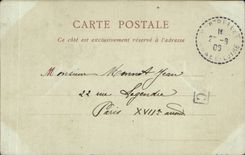 CARTE POSTALE
Ce côté est exclusivement réservé à l'adresse
Monsieur Monnot Jean
22 rue Legendre
Paris XVIIe arrond